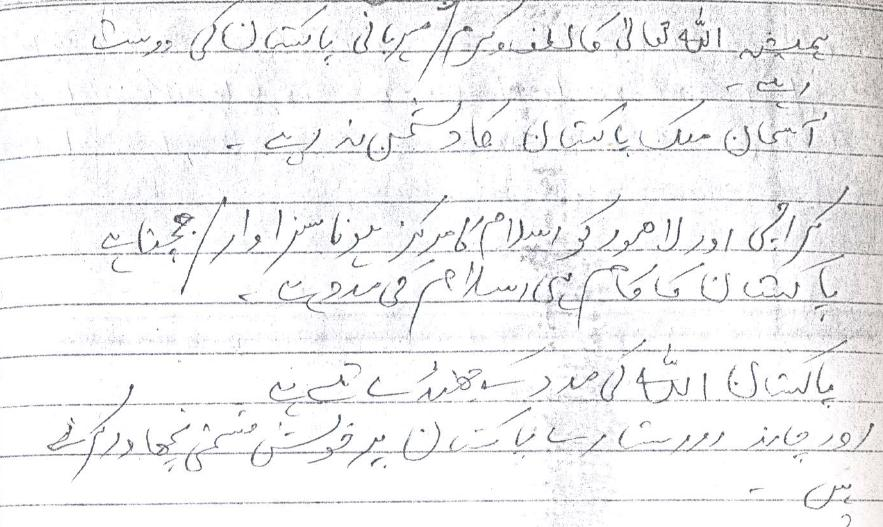 ہمیشہ اللہ تعالیٰ کا لطف و کرم / مہربانی پاکستان کی دوست
رہے ۔
آسمان ملک پاکستان کا دشمن نہ رہے ۔
کراچی اور لاھور کو اسلام کا مرکز ہونا سزاوار / جچتا ہے
پاکستان کا کام ہی اسلام کی مدد ہے ۔
پاکستان اللہ کی مدد کے جھنڈے تلے ہے
اور چاند اور ستارے پاکستان پر خوش قسمتی نچھاور کرتے
ہیں ۔